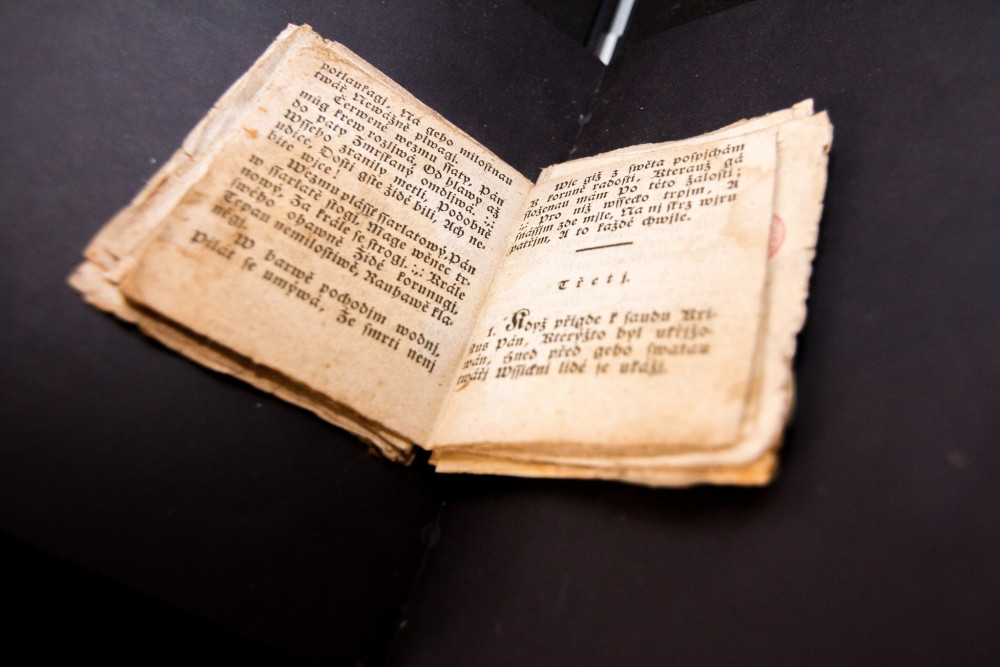 potlaukagi, Na geho milostnau
twář Newážně plwagi.
Čerwené wezmu ssaty, Pán
můg krew rozliwá, Od hlawy až
do paty Zmrskaný omdliwá. .;.
Wsseho zranily metli, Podobně
udice, Dosti giste židé bili, Ach ne-
bite wjce!
Wezmu plássť ssarlatowý, Pán
w ssarlatě stogj, Mage wěnec tr-
nowý, Že krále se strogj. .;. Krále
swého ohawně Židé korunugi,
Trpau nemilostiwě, Rauhawě kla-
něgi.
W barwě pochodjm wodnj,
Pilát se umýwá, Že smrti nenj
Wjc giž z swěta pospjchám
K koruně radosti, Kterauž gá
složenau mám Po této žalosti;
.;. Pro njž wssecko trojm, A
snássjm zde mile, Na nj skrz wjru
patřjm, A to každé chwjle.
Třetj.
1. Když přigde k saudu Kri-
stus Pán, Kterýžto byl ukřižo-
wán, Hned před geho swatau
twářj Wssickni lidé se ukážj.